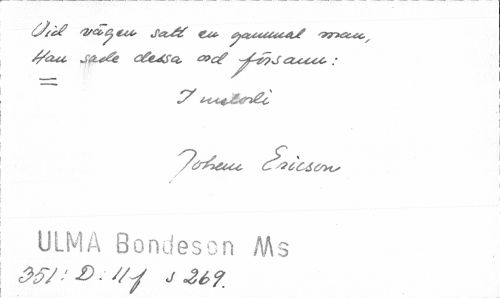 Vid vägen satt en gammal man,
Han sade dessa ord försann:
I melodi
Johan Ericson
ULMA Bondeson Ms
351: D: 11 f s 269.